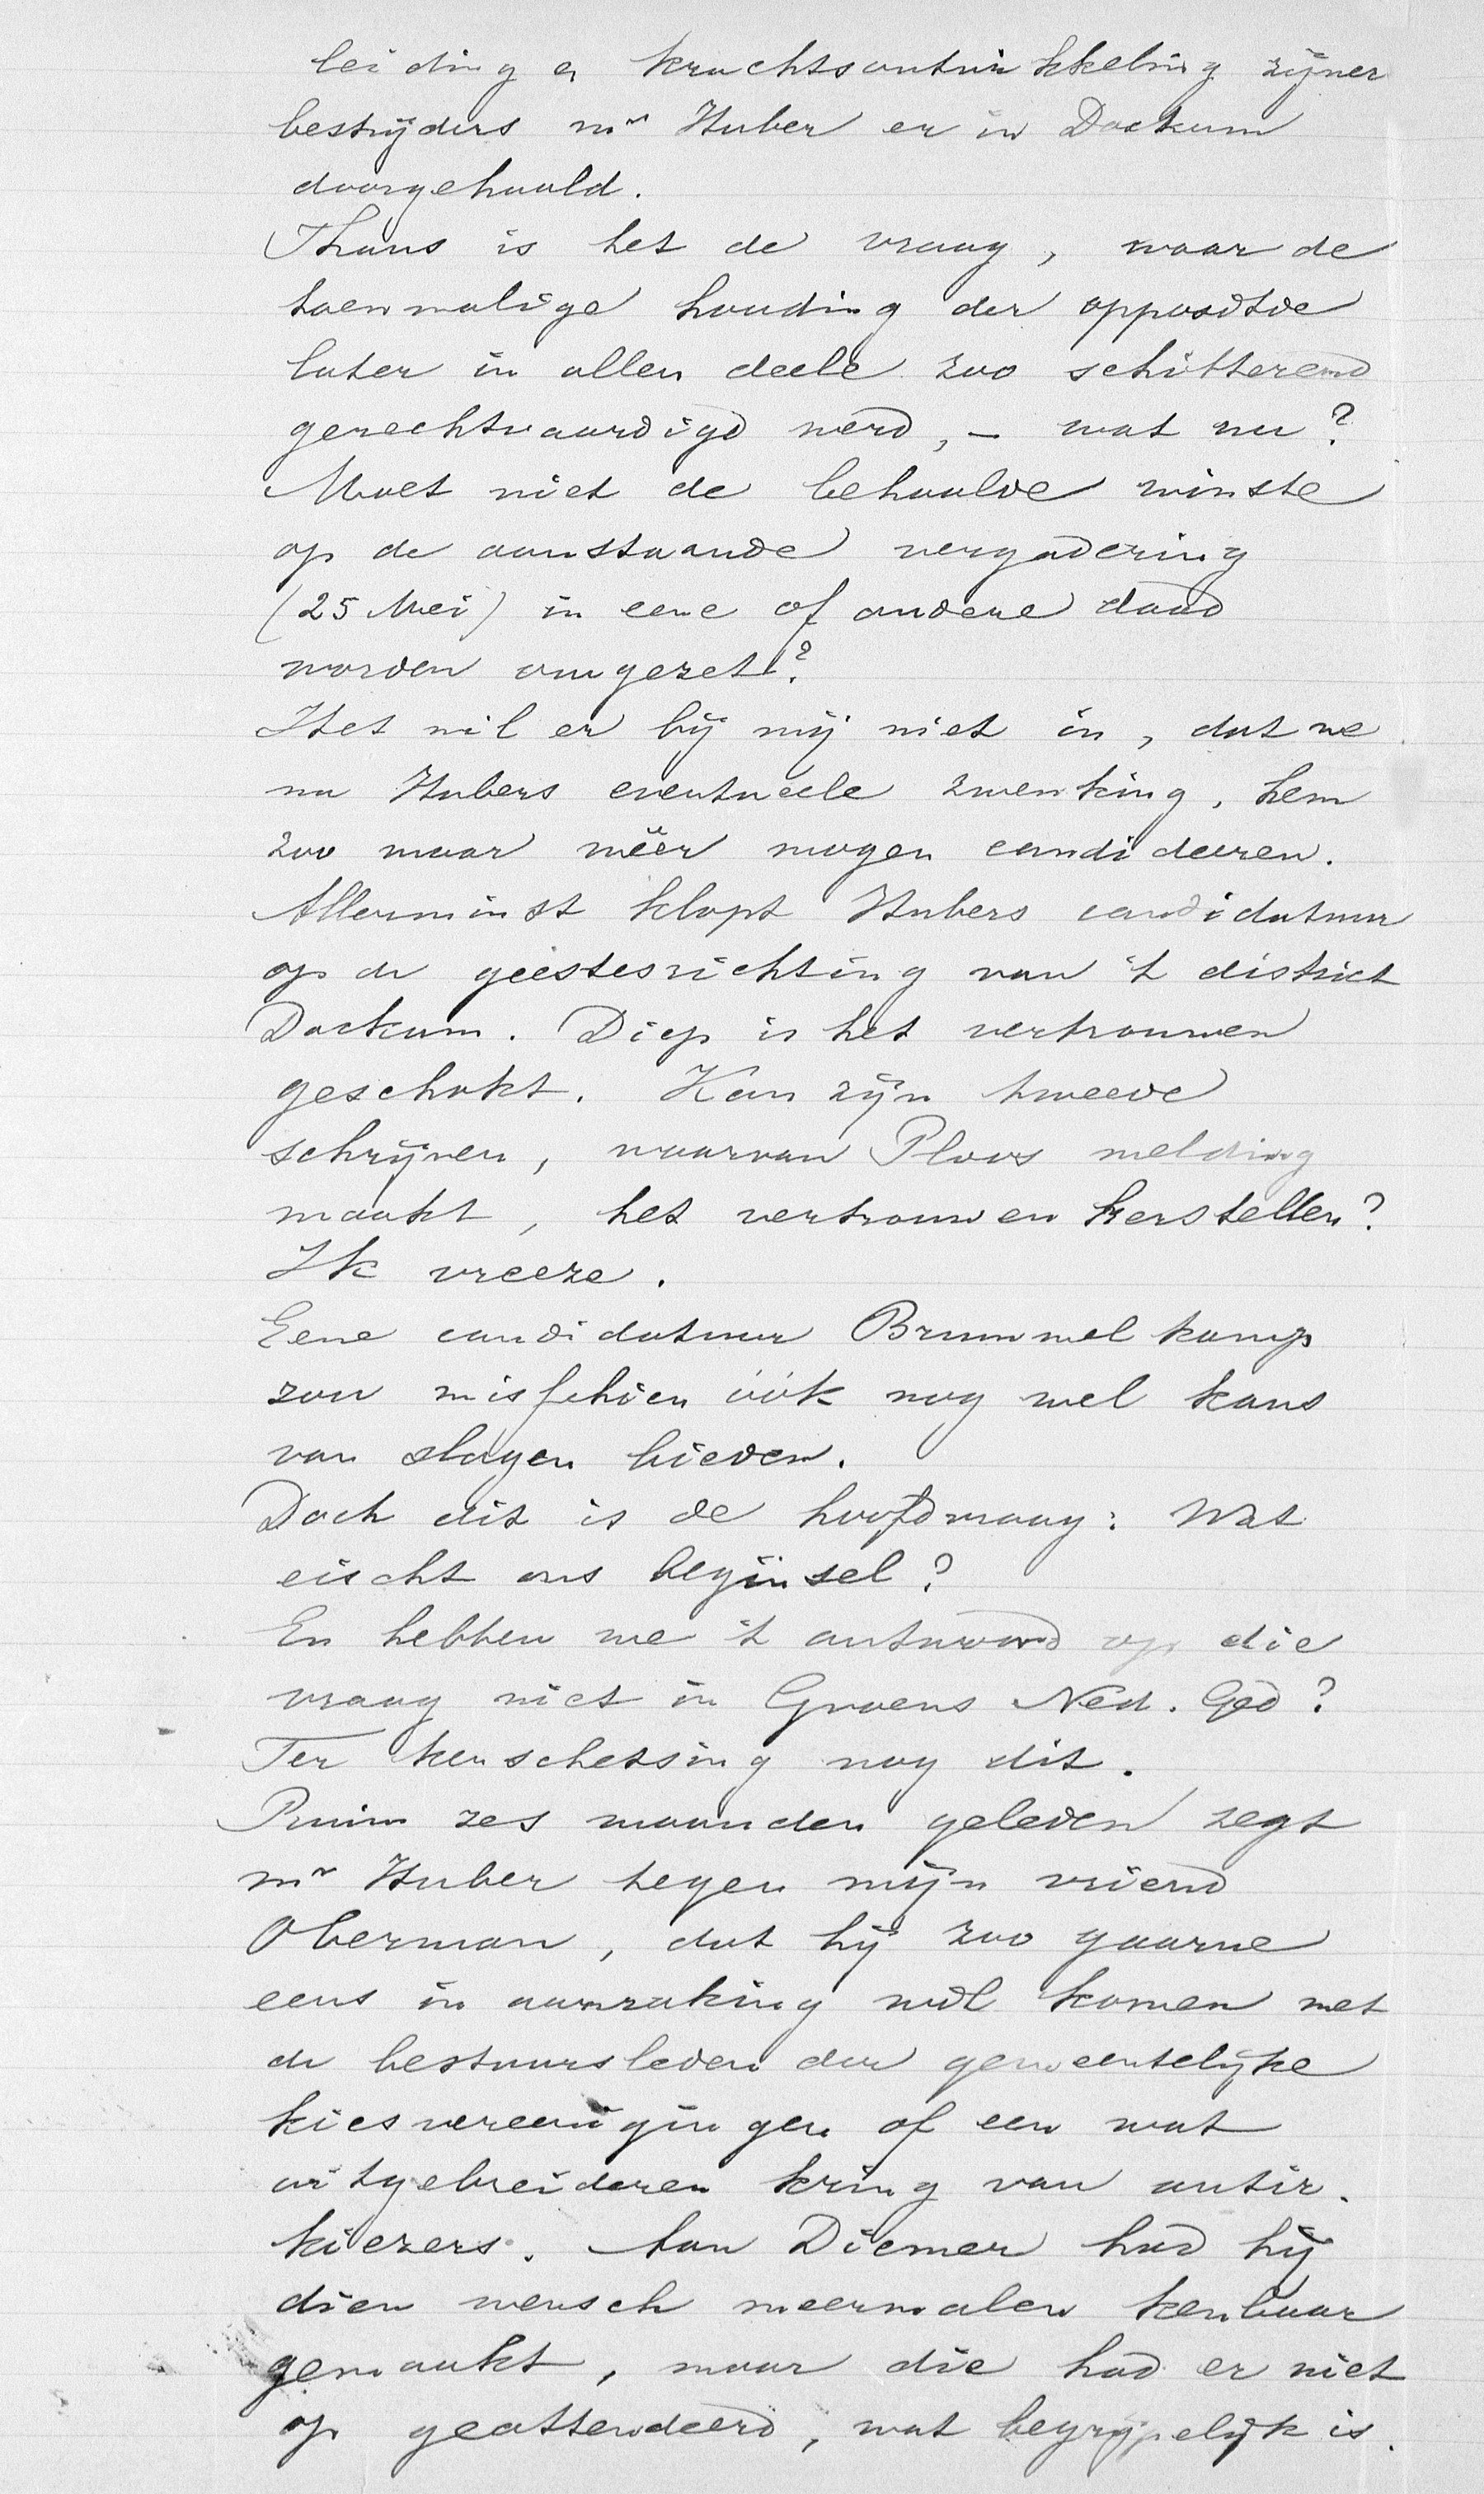 leiding en krachtsontwikkeling zijner
bestrijders mr Huber er in Dockum
doorgehaald.
Thans is het de vraag, waar de
toenmalige houding der oppositie
later in allen deele zoo schitterend
gerechtvaardigd werd, — wat nu?
Moet niet de behaalde winste
op de aanstaande vergadering
(25 Mei) in eene of andere daad
worden omgezet?
Het wil er bij mij niet in, dat we
na Hubers eventueele zwenking, hem
zoo maar wéér mogen candideeren.
Allerminst klopt Hubers candidatuur
op de geestesrichting van 't district
Dockum. Diep is het vertrouwen
geschokt. Kan zijn tweede
schrijven, waarvan Ploos melding
maakt, het vertrouwen herstellen?
Ik vreeze.
Eene candidatuur Brummelkamp
zou misschien óók nog wel kans
van slagen bieden.
Doch dit is de hoofdvraag: Wat
eischt ons beginsel?
En hebben we 't antwoord op die
vraag niet in Groens Ned. Ged?
Ter kenschetsing nog dit.
Ruim zes maanden geleden zegt
mr Huber tegen mijn vriend
Oberman, dat hij zoo gaarne
eens in aanraking wil komen met
de bestuursleden der gemeentelijke
kiesvereenigingen of een wat
uitgebreideren kring van antir.
kiezers. Aan Diemer had hij
dien wensch meermalen kenbaar
gemaakt, maar die had er niet
op geattendeerd, wat begrijpelijk is.